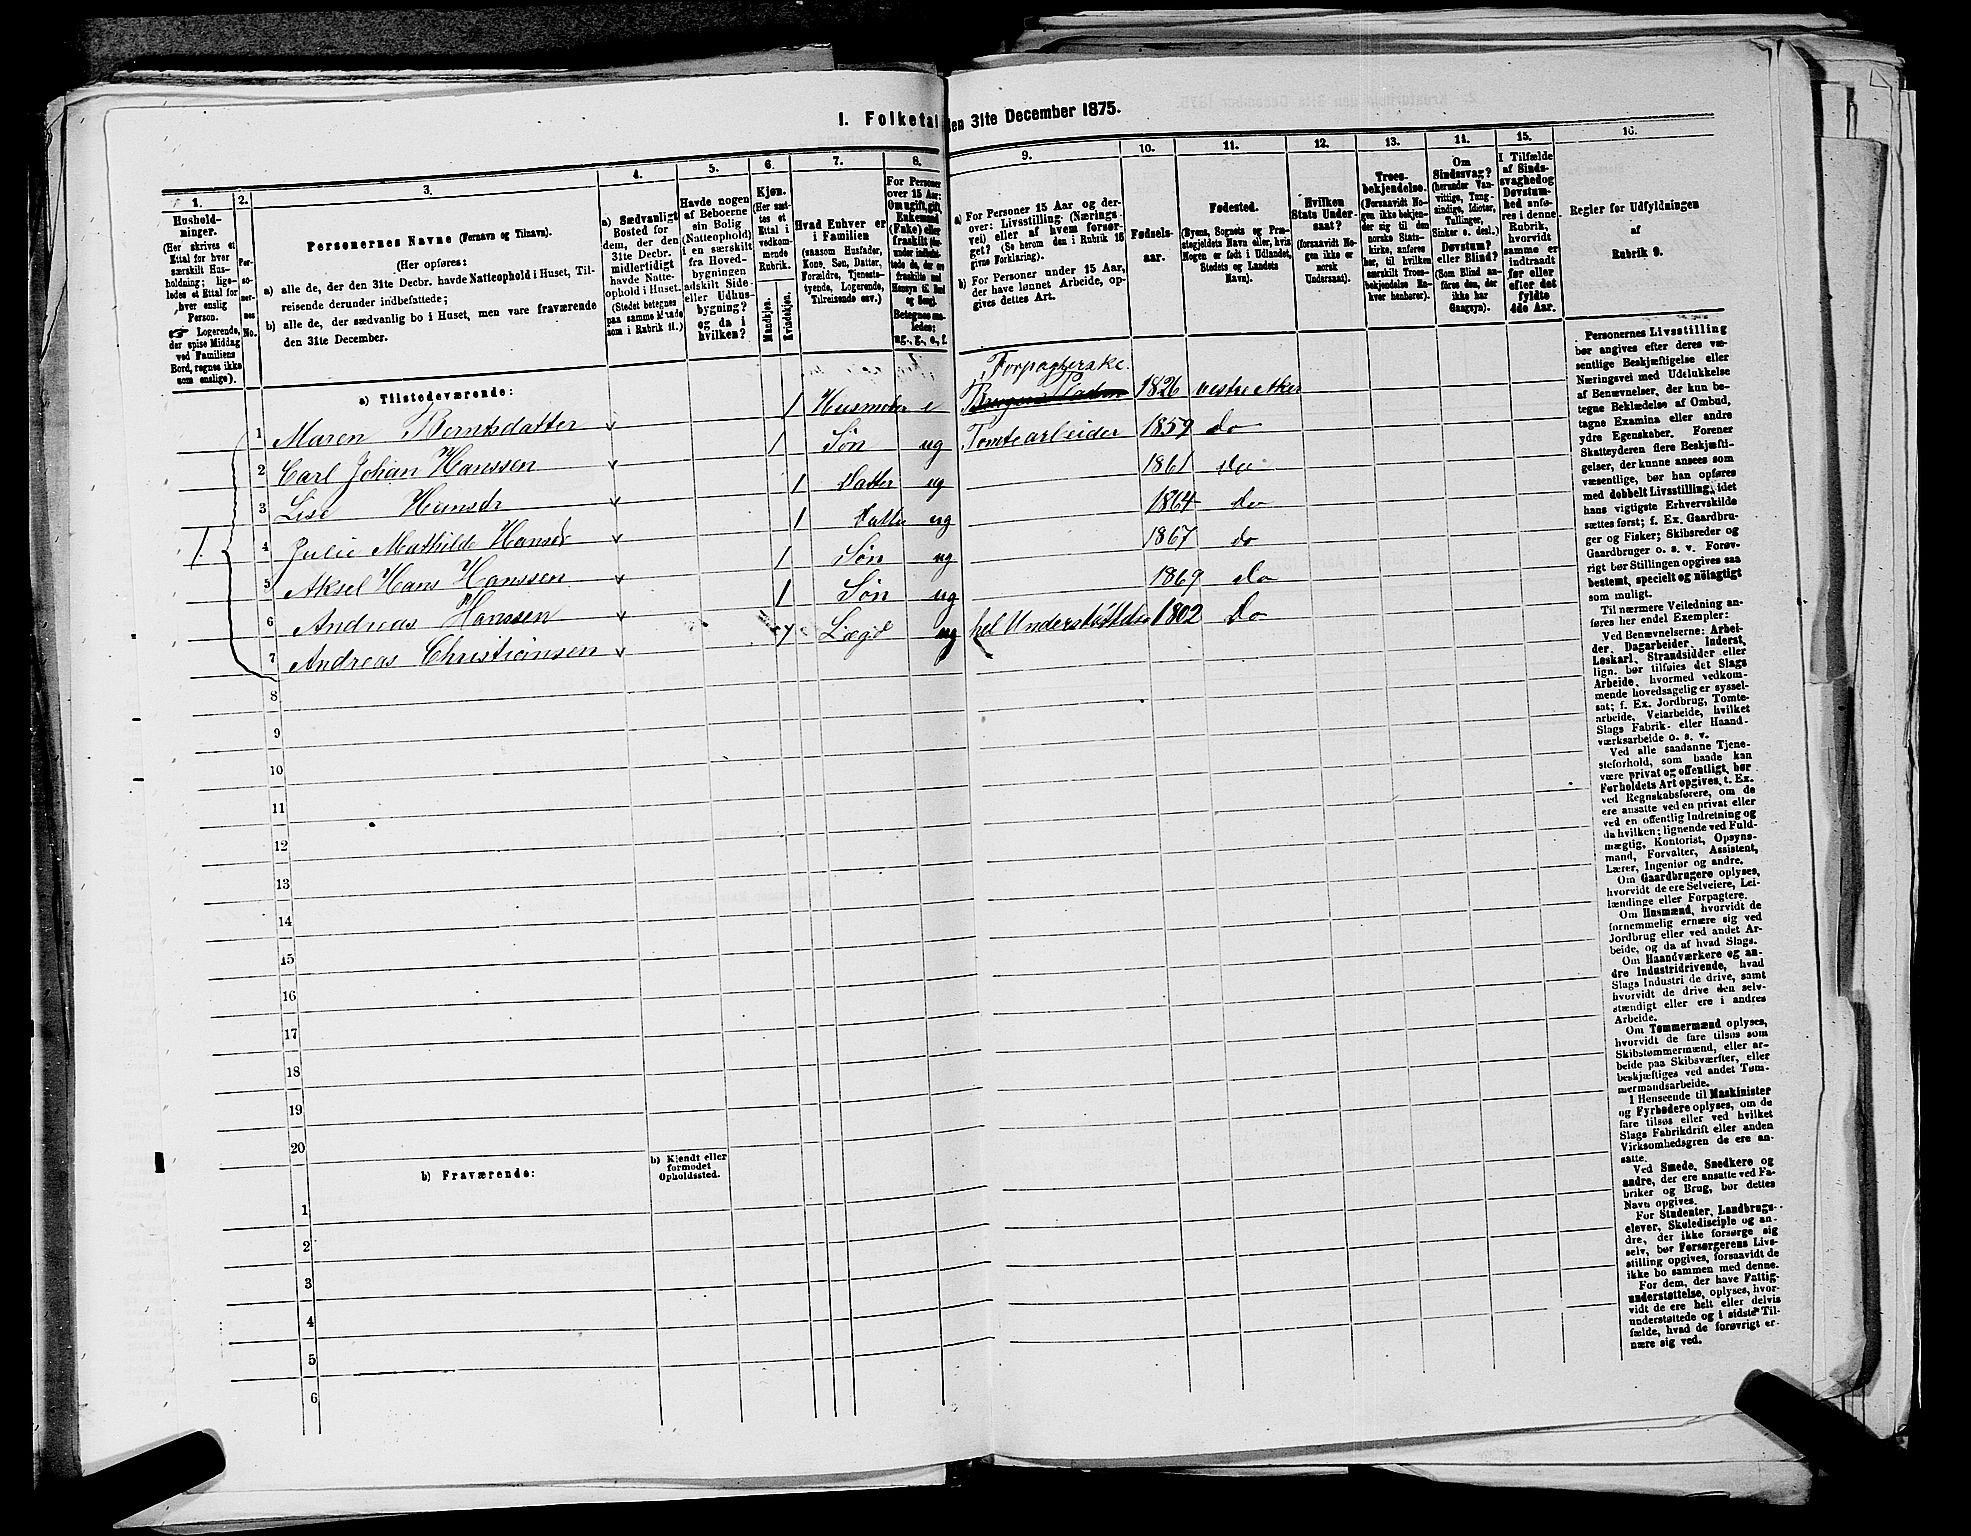 I. Folketal den 31te December 1875.
1.
Hushold-
ninger.
(Her skrives et
Ettal for hver
særskilt Hus-
holdning; lige-
ledes et Ettal for
hver enslig
Person.
☞ Logerende,
der spise Middag
ved Familiens
Bord, regnes ikke
som enslige).
2.
Per-
so-
ner-
nes
No.
3.
Personernes Navne (Fornavn og Tilnavn).
(Her opføres:
a) alle de, der den 31te Decbr. havde Natteophold i Huset, Til-
reisende derunder indbefattede;
b) alle de, der sædvanlig bo i Huset, men vare fraværende
den 31te December.
4.
a) Sædvanligt
Bosted for
dem, der den
31te Decbr.
midlertidigt
havde Natte-
ophold i Huset.
(Stedet betegnes
paa samme Maade
som i Rubrik 11.)
5.
Havde nogen
af Beboerne
sin Bolig
(Natteophold)
i en særskilt
fra Hoved-
bygningen
adskilt Side-
eller Udhus-
bygning?
og da i
hvilken?
6.
Kjøn.
(Her sæt-
tes et
Ettal i
vedkom-
mende
Rubrik.
Mandkjøn.
Kvindekjøn.
7.
Hvad Enhver er
i Familien
(saasom Husfader,
Kone, Søn, Datter,
Forældre, Tjeneste-
tyende, Logerende,
Tilreisende osv.)
8.
For Personer
over 15 Aar:
Om ugift, gift,
Enkemand
(Enke) eller
fraskilt
Betegnes saa-
ledes:
ug., g., e., f.
9.
a) For Personer 15 Aar og der-
over: Livsstilling (Nærings-
vei) eller af hvem forsør-
get? (Se herom den i Rubrik 16
givne Forklaring).
b) For Personer under 15 Aar,
der have lønnet Arbeide, op-
gives dettes Art.
10.
Fødsels-
aar.
11.
Fødested.
(Byens, Sognets og Præ-
stegjeldets Navn eller, hvis
Nogen er født i Udlandet,
Stedets og Landets
Navn).
12.
Hvilken
Stats Under-
saat?
(forsaavidt No-
gen ikke er
norsk
Undersaat).
13.
Troes-
bekjendelse.
(Forsaavidt No-
gen ikke bekjen-
der sig til den
norske Stats-
kirke, anføres
her, til hvilken
særskilt Troes-
bekjendelse En-
hver henhører).
14.
Om
Sindssvag?
(herunder Van-
vittige, Tung-
sindige, Idioter,
Tullinger,
Sinker o. desl.)
Døvstum?
eller Blind?
(Som Blind an-
føres den, der
ikke har
Gangsyn).
15.
I Tilfælde
af Sinds-
svaghed og
Døvstum-
hed anfø-
res i denne
Rubrik,
hvorvidt
samme er
indtraadt
før eller
efter det
fyldte
4de Aar.
16.
Regler for Udfyldningen
af
Rubrik 9.
a) Tilstedeværende:
Forpagterske
1 Maren Berntsdatter v 1 Husmoder e 1826 vestre Aker
2 Carl Johan Hanssen v 1 Søn ug Tomtearbeider 1859 do
3 Lise Hansdr v 1 Datter ug 1861 do
1 4 Julie Mathilde Hansdr v 1 Datter ug 1864 do
5 Aksel Hans Hanssen v 1 Søn ug 1867 do
6 Andreas Hanssen v 1 Søn ug 1869 do
7 Andreas Christiansen v Lægd ug hel Understøttelse 1802 Do
8
9
10
11
12
13
14
15
16
17
18
19
20
b) Fraværende:
b) Kjendt eller
formodet
Opholdssted.
1
2
3
4
5
6
Personernes Livsstilling
bør angives efter deres væ-
sentlige Beskjæftigelse eller
Næringsvei med Udelukkelse
af Benævnelser, der kun be-
tegne Beklædelse af Ombud,
tagne Examina eller andre
ydre Egenskaber. Forener
Skatteyderen flere Beskjæfti-
gelser, der kunne ansees som
væsentlige, bør han opføres
med dobbelt Livsstilling, idet
hans vigtigste Erhvervskilde
sættes først; f. Ex. Gaardbru-
ger og Fisker; Skibsreder og
Gaardbruger o. s. v. Forøv-
rigt bør Stillingen opgives saa
bestemt, specielt og nøiagtigt
som muligt.
Til nærmere Veiledning an-
føres her endel Exempler:
Ved Benævnelserne: Arbei-
der, Dagarbeider, Inderst,
Løskarl, Strandsidder eller
lign. bør tilføies det Slags
Arbeide, hvormed vedkom-
mende hovedsagelig er syssel-
sat; f. Ex. Jordbrug, Tomte-
arbeide, Veiarbeide, hvilket
Slags Fabrik- eller Haand-
værksarbeide o. s. v.
Ved alle saadanne Tjene-
steforhold, som baade kan
være privat og offentligt, bør
Forholdets Art opgives, t. Ex.
ved Regnskabsførere, om de
ere ansatte ved en privat eller
ved en offentlig Indretning og
da hvilken; lignende ved Fuld-
mægtig, Kontorist, Opsyns-
mand, Forvalter, Assistent,
Lærer, Ingeniør og andre.
Om Gaardbrugere oplyses,
hvorvidt de ere Selveiere, Lei-
lændinge eller Forpagtere.
Om Husmænd, hvorvidt de
fornemmelig ernære sig ved
Jordbrug eller ved andet Ar-
beide, og da af hvad Slags.
Om Haandværkere og an-
dre Industridrivende, hvad
Slags Industri de drive, samt
hvorvidt de drive den selv-
stændigt eller ere i andres
Arbeide.
Om Tømmermænd oplyses,
hvorvidt de fare tilsøs som
Skibstømmermænd, eller ar-
beide paa Skibsværfter, eller
beskjæftiges ved andet Tøm-
mermandsarbeide.
I Henseende til Maskinister
og Fyrbødere oplyses, om de
fare tilsøs eller ved hvilket
Slags Fabrikdrift eller anden
Virksomhedsgren de ere an-
satte.
Ved Smede, Snedkere og
andre, der ere ansatte ved Fa-
briker og Brug, bør dettes
Navn opgives.
For Studenter, Landbrugs-
elever, Skoledisciple og an-
dre, der ikke forsørge sig
selv, bør Forsørgerens Livs-
stilling opgives, forsaavidt de
ikke bo sammen med denne.
For dem, der have Fattig-
understøttelse, oplyses, hvor-
vidt de ere helt eller delvis
understøttede og i sidste Til-
fælde, hvad de forøvrigt er-
nære sig ved.